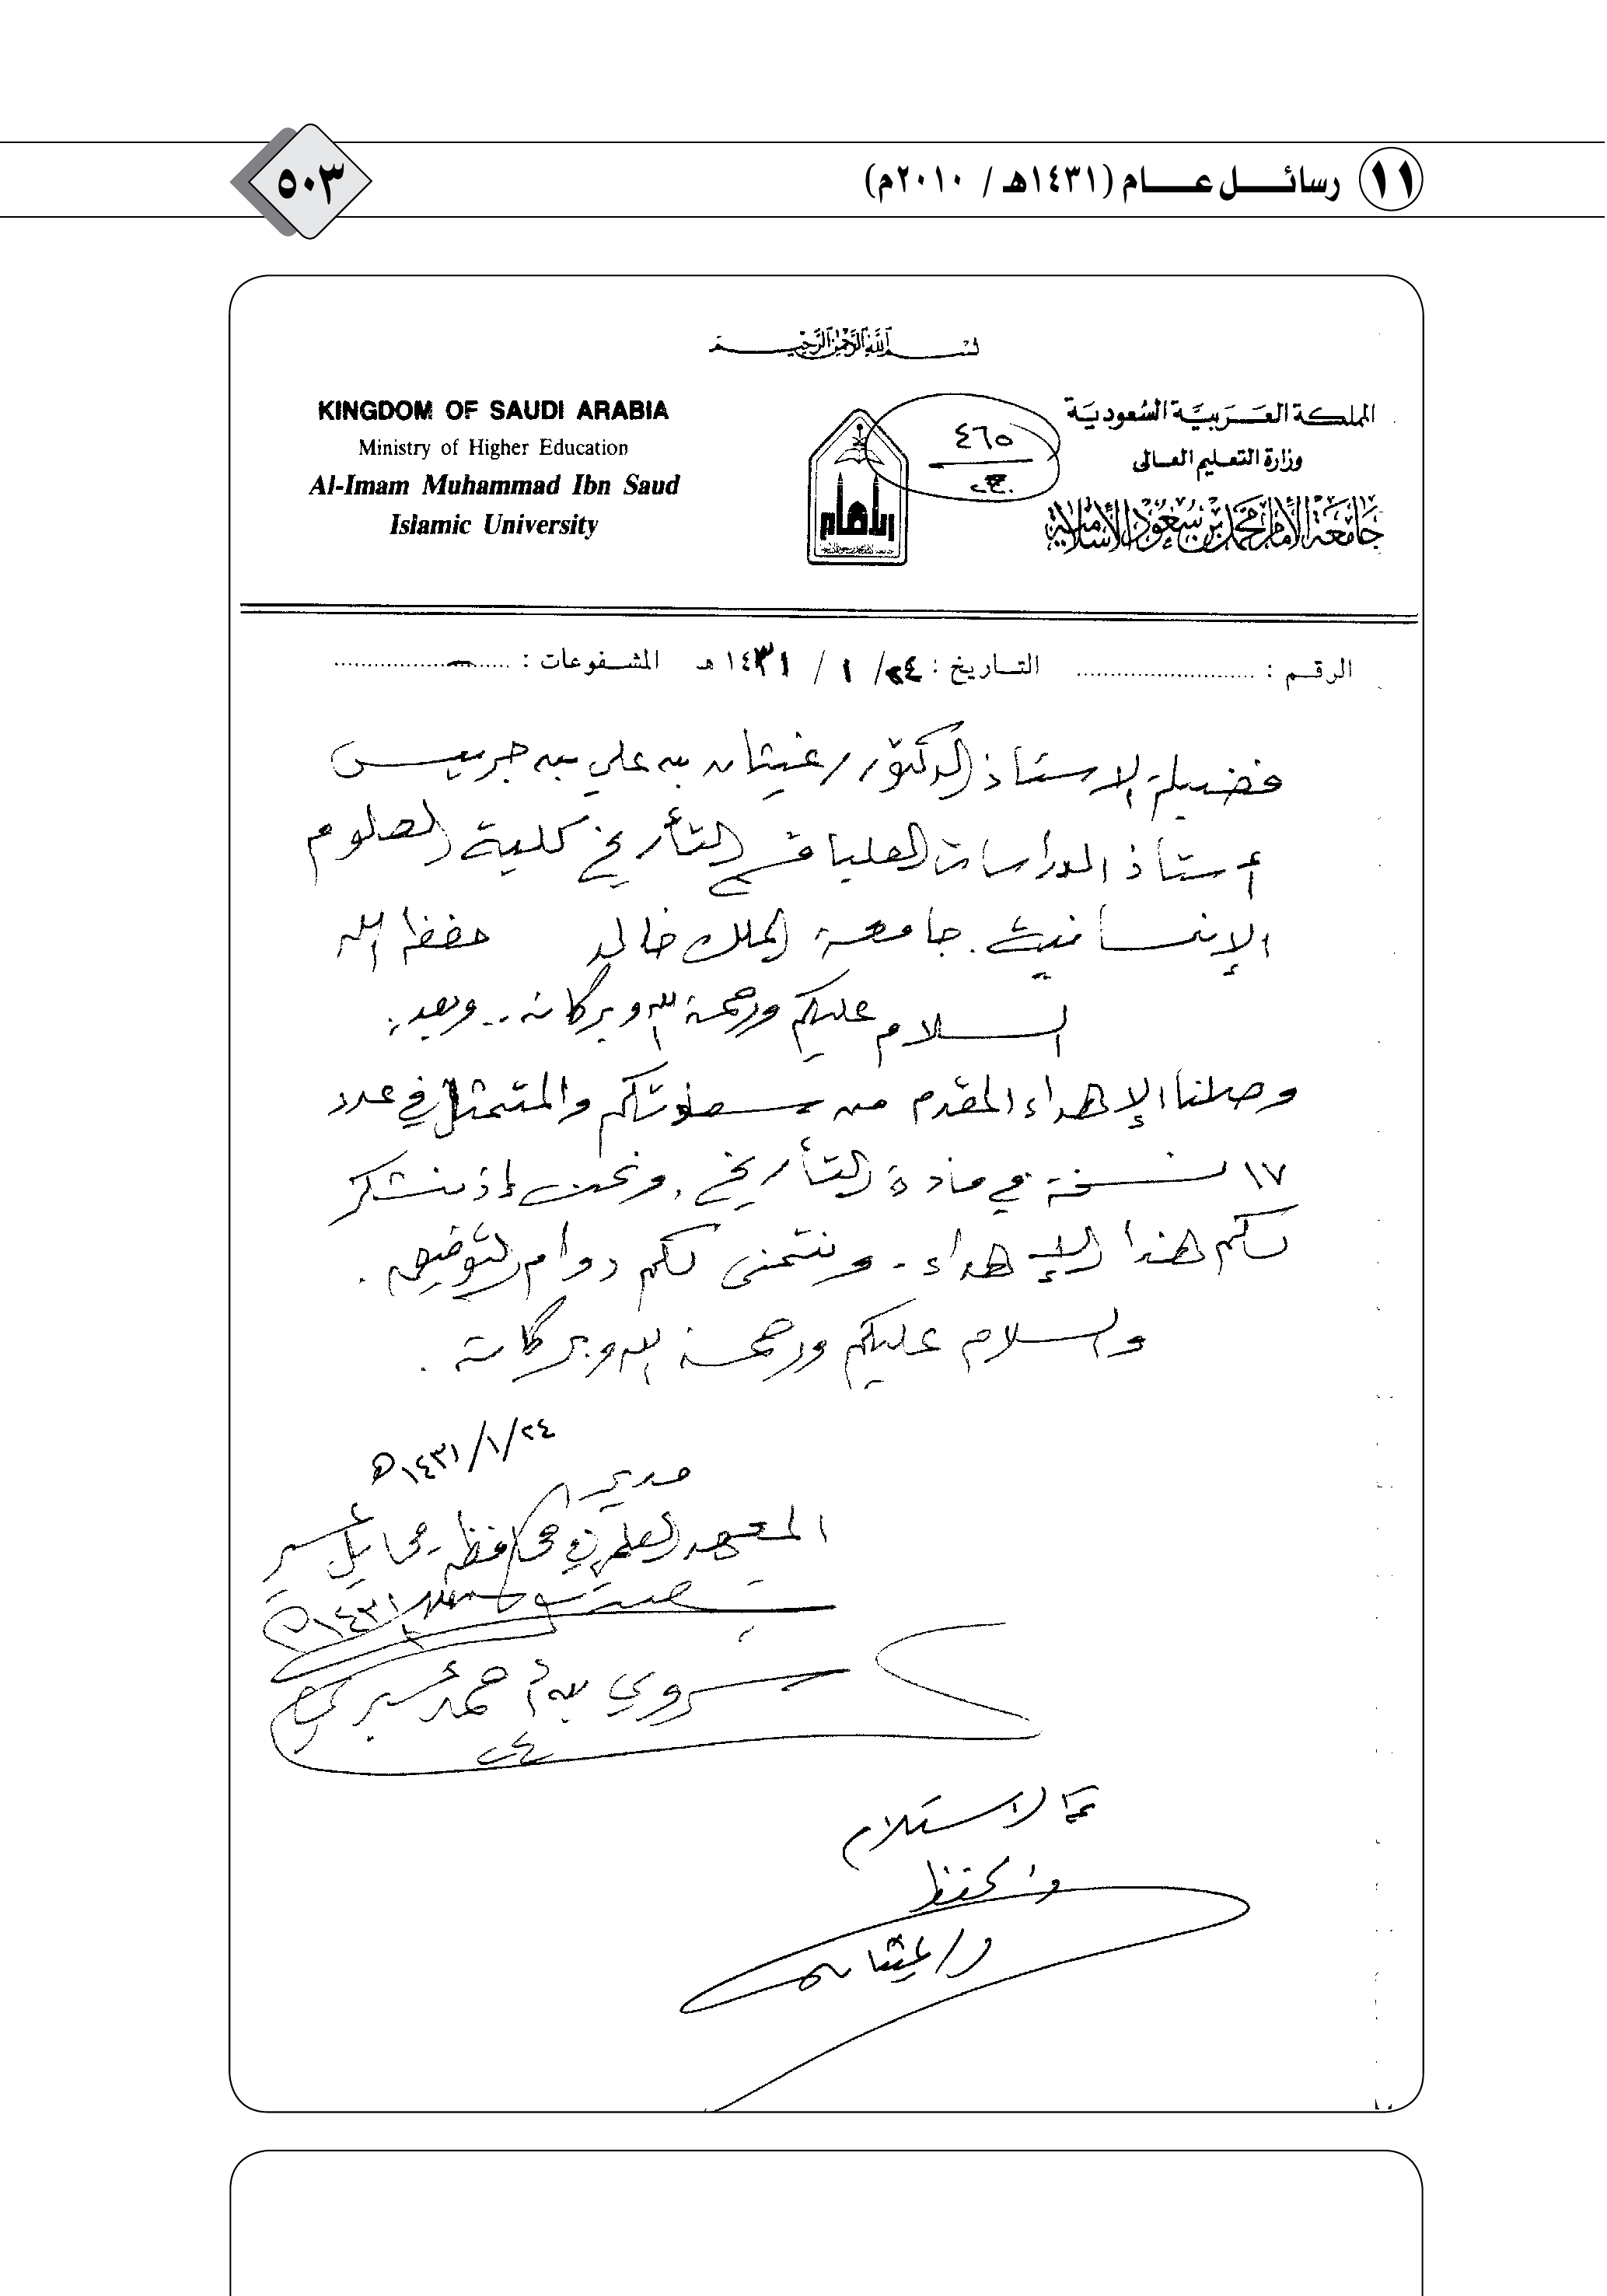 ١١ رسائل عام (١٤٣١هـ / ٢٠١٠م)
٥٠٣
بسم الله الرحمن الرحيم
KINGDOM OF SAUDI ARABIA
Ministry of Higher Education
Al-Imam Muhammad Ibn Saud
Islamic University
المملكة العربية السعودية
وزارة التعليم العالى
جامعة الإمام محمد بن سعود الإسلامية
الإمام
٤٦٥
الرقم : التاريخ : ٢٤ / ١ / ١٤٣١ هـ المشفوعات :
فضيلة الاستاذ الدكتور / غيثان بن علي بن جريس
أستاذ الدراسات العليا قسم التأريخ كلية العلوم
الإنسانية . جامعة الملك خالد حفظه الله
السلام عليكم ورحمة الله وبركاته .. وبعد :
وصلنا الإهداء المقدم من سعادتكم والمتمثل في عدد
١٧ نسخة في مادة التأريخ . ونحن إذ نشكر
لكم هذا الإهداء . ونتمنى لكم دوام التوفيق .
والسلام عليكم ورحمة الله وبركاته .
١٤٣١/١/٢٤هـ
مدير
المعهد العلمي في محافظة محايل عسير
١٤٣١هـ
بن أحمد عسيري
تم الاستلام
ويحفظ
د/ غيثان